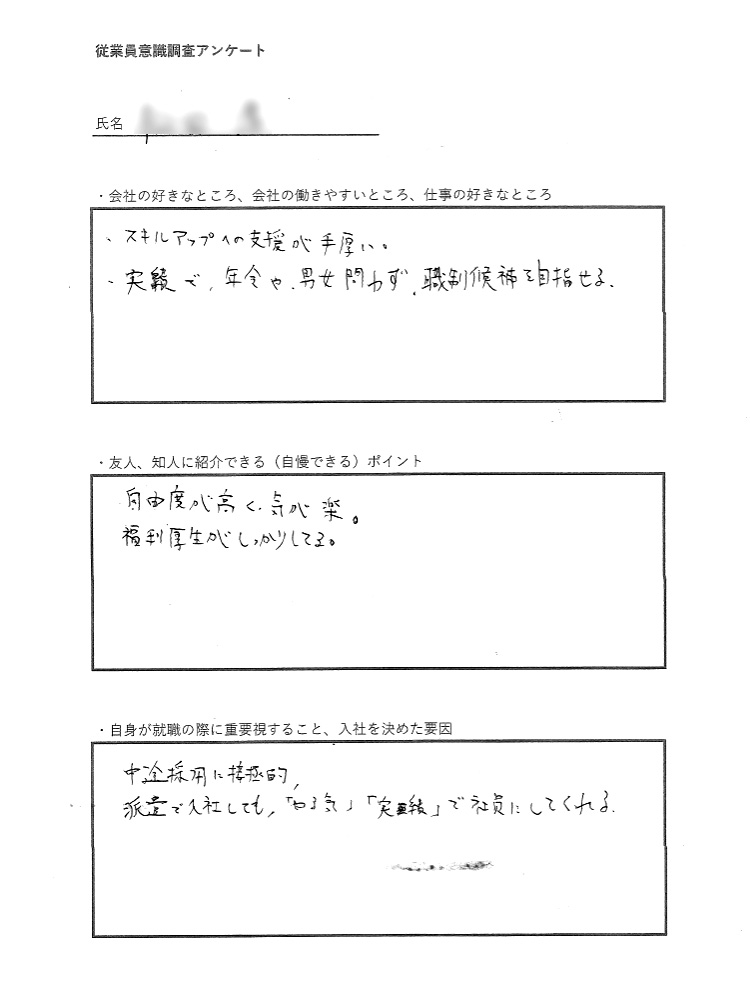 従業員意識調査アンケート
氏名
・会社の好きなところ、会社の働きやすいところ、仕事の好きなところ
・スキルアップへの支援が手厚い。
・実績で、年令や、男女問わず、職制候補を目指せる。
・友人、知人に紹介できる（自慢できる）ポイント
自由度が高く、気が楽。
福利厚生がしっかりしてる。
・自身が就職の際に重要視すること、入社を決めた要因
中途採用に積極的,
派遣で入社しても,「やる気」「実績」で社員にしてくれる.